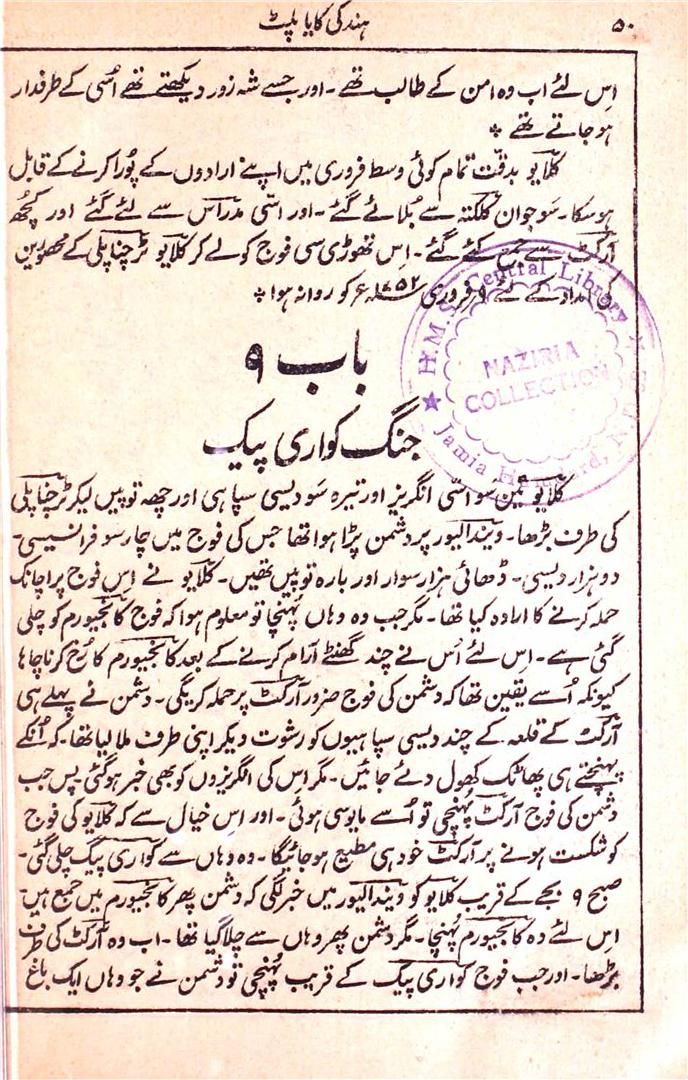 ۵۰
ہند کی کایا پلٹ
اِس لئے اب وہ امن کے طالب تھے ۔ اور جسے شہ زور دیکھتے تھے اُسی کے طرفدار
ہو جاتے تھے ٭
کلایو بدقّت تمام کوئی وسط فروری میں اپنے ارادوں کے پُورا کرنے کے قابل
ہو سکا ۔ سَو جوان کلکتہ سے بُلائے گئے ۔ اور اسّی مدراس سے لئے گئے اور کچُھ
آرکٹ سے جمع کئے گئے ۔ اِس تھوڑی سی فوج کو لے کر کلایو ترچناپلی کے محصورین
کی امداد کے لئے ۹ فروری ۱۷۵۲ء کو روانہ ہوا ٭
H. M. S. Central Library
NAZIRIA
COLLECTION
Jamia Hamdard, N.
باب ۹
جنگ کواری پیک
کلایو تین سو اسّی انگریز اور تیرہ سَو دیسی سپاہی اور چھہ توپیں لیکر ترچناپلی
کی طرف بڑھا ۔ ویندالیور پر دشمن پڑا ہوا تھا جس کی فوج میں چار سو فرانسیسی ۔
دو ہزار دیسی ۔ ڈھائی ہزار سوار اور بارہ توپیں تھیں ۔ کلایو نے اِس فوج پر اچانک
حملہ کرنے کا ارادہ کیا تھا ۔ مگر جب وہ وہاں پُہنچا تو معلوم ہوا کہ فوج کانجیورم کو چلی
گئی ہے ۔ اِس لئے اُس نے چند گھنٹے آرام کرنے کے بعد کانجیورم کا رُخ کرنا چاہا
کیونکہ اُسے یقین تھا کہ دشمن کی فوج ضرور آرکٹ پر حملہ کریگی ۔ دشمن نے پہلے ہی
آرکٹ کے قلعہ کے چند دیسی سپاہیوں کو رشوت دیکر اپنی طرف ملا لیا تھا ۔ کہ اُنکے
پہنچتے ہی پھاٹک کھول دئے جائیں ۔ مگر اِس کی انگریزوں کو بھی خبر ہو گئی ۔ پس جب
دشمن کی فوج آرکٹ پُہنچی تو اُسے مایوسی ہوئی ۔ اور اس خیال سے کہ کلایو کی فوج
کو شکست ہونے پر آرکٹ خود ہی مطیع ہو جائیگا ۔ وہ وہاں سے کواری پیگ چلی گئی ۔
صبح ۹ بجے کے قریب کلایو کو ویندالیور میں خبر لگی کہ دشمن پھر کانجیورم میں جمع ہیں ۔
اس لئے وہ کانجیورم پُہنچا ۔ مگر دشمن پھر وہاں سے چلا گیا تھا ۔ اب وہ آرکٹ کی طرف
بڑھا ۔ اور جب فوج کواری پیگ کے قریب پُہنچی تو دشمن نے جو وہاں ایک باغ